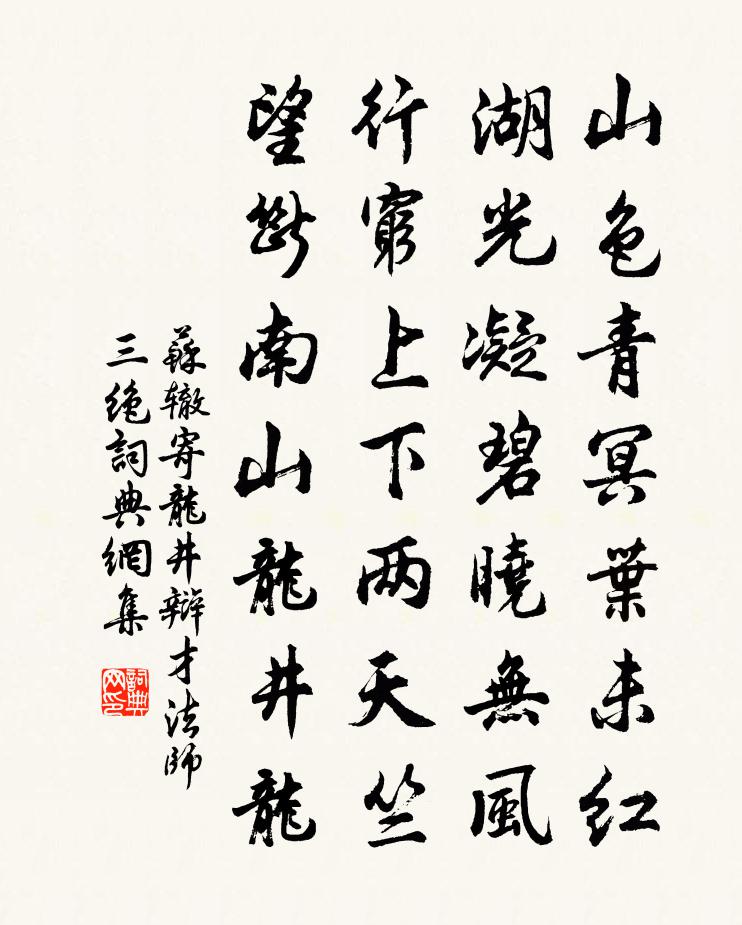 山色青冥葉未红
湖光凝碧曉無風
行窮上下两天竺
望斷南山龍井龍
蘇辙寄龍井辯才法師
三绝詞典網集
詞典
网印